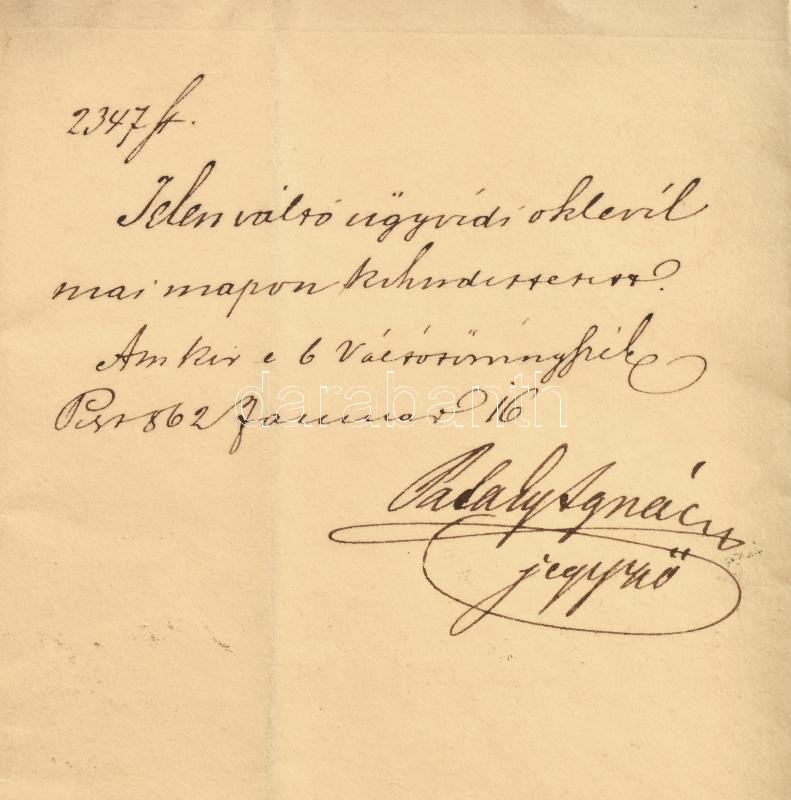 2347 ft.
Jelen váltó ügyvédi oklevél
mai napon kihirdettetett.
A m kir e b Váltótörvényszék
Pest 862 Január 16
darabanth
Ignácz
jegyző